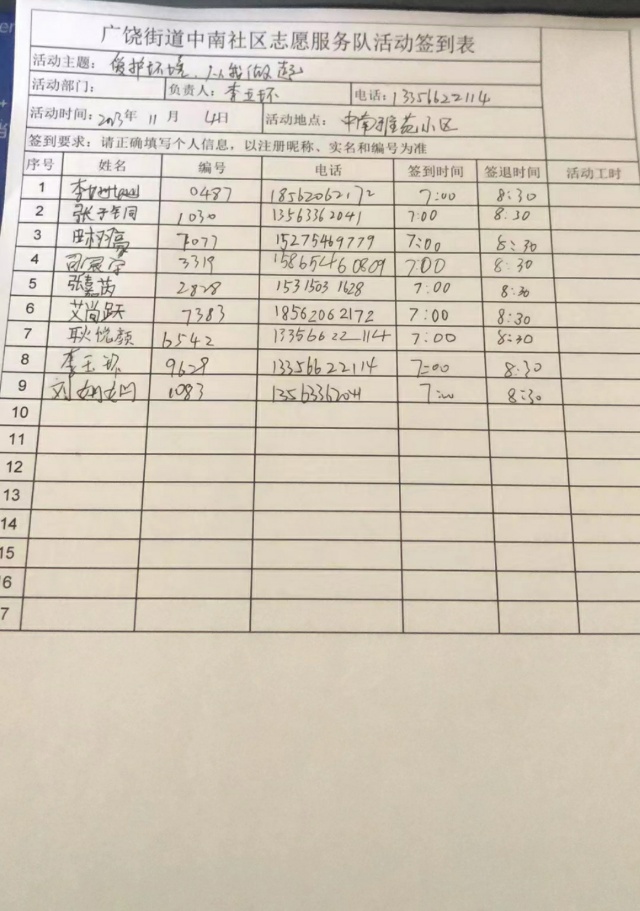 广饶街道中南社区志愿服务队活动签到表
活动主题：爱护环境，从我做起
活动部门： 负责人：李玉环 电话：13356622114
活动时间：2023年 11 月 4日 活动地点：中南雅苑小区
签到要求：请正确填写个人信息，以注册昵称、实名和编号为准
序号 姓名 编号 电话 签到时间 签退时间 活动工时
1 李 0487 18562062172 7:00 8:30
2 张子 1030 13563362041 7:00 8:30
3 田 7077 15275469779 7:00 8:30
4 3319 15865460809 7:00 8:30
5 张嘉芮 2828 15315031628 7:00 8:30
6 艾尚跃 7383 18562062172 7:00 8:30
7 耿 6542 13356622114 7:00 8:30
8 李玉环 9628 13356622114 7:00 8:30
9 刘 1083 13563362041 7:00 8:30
10
11
12
13
14
15
6
7